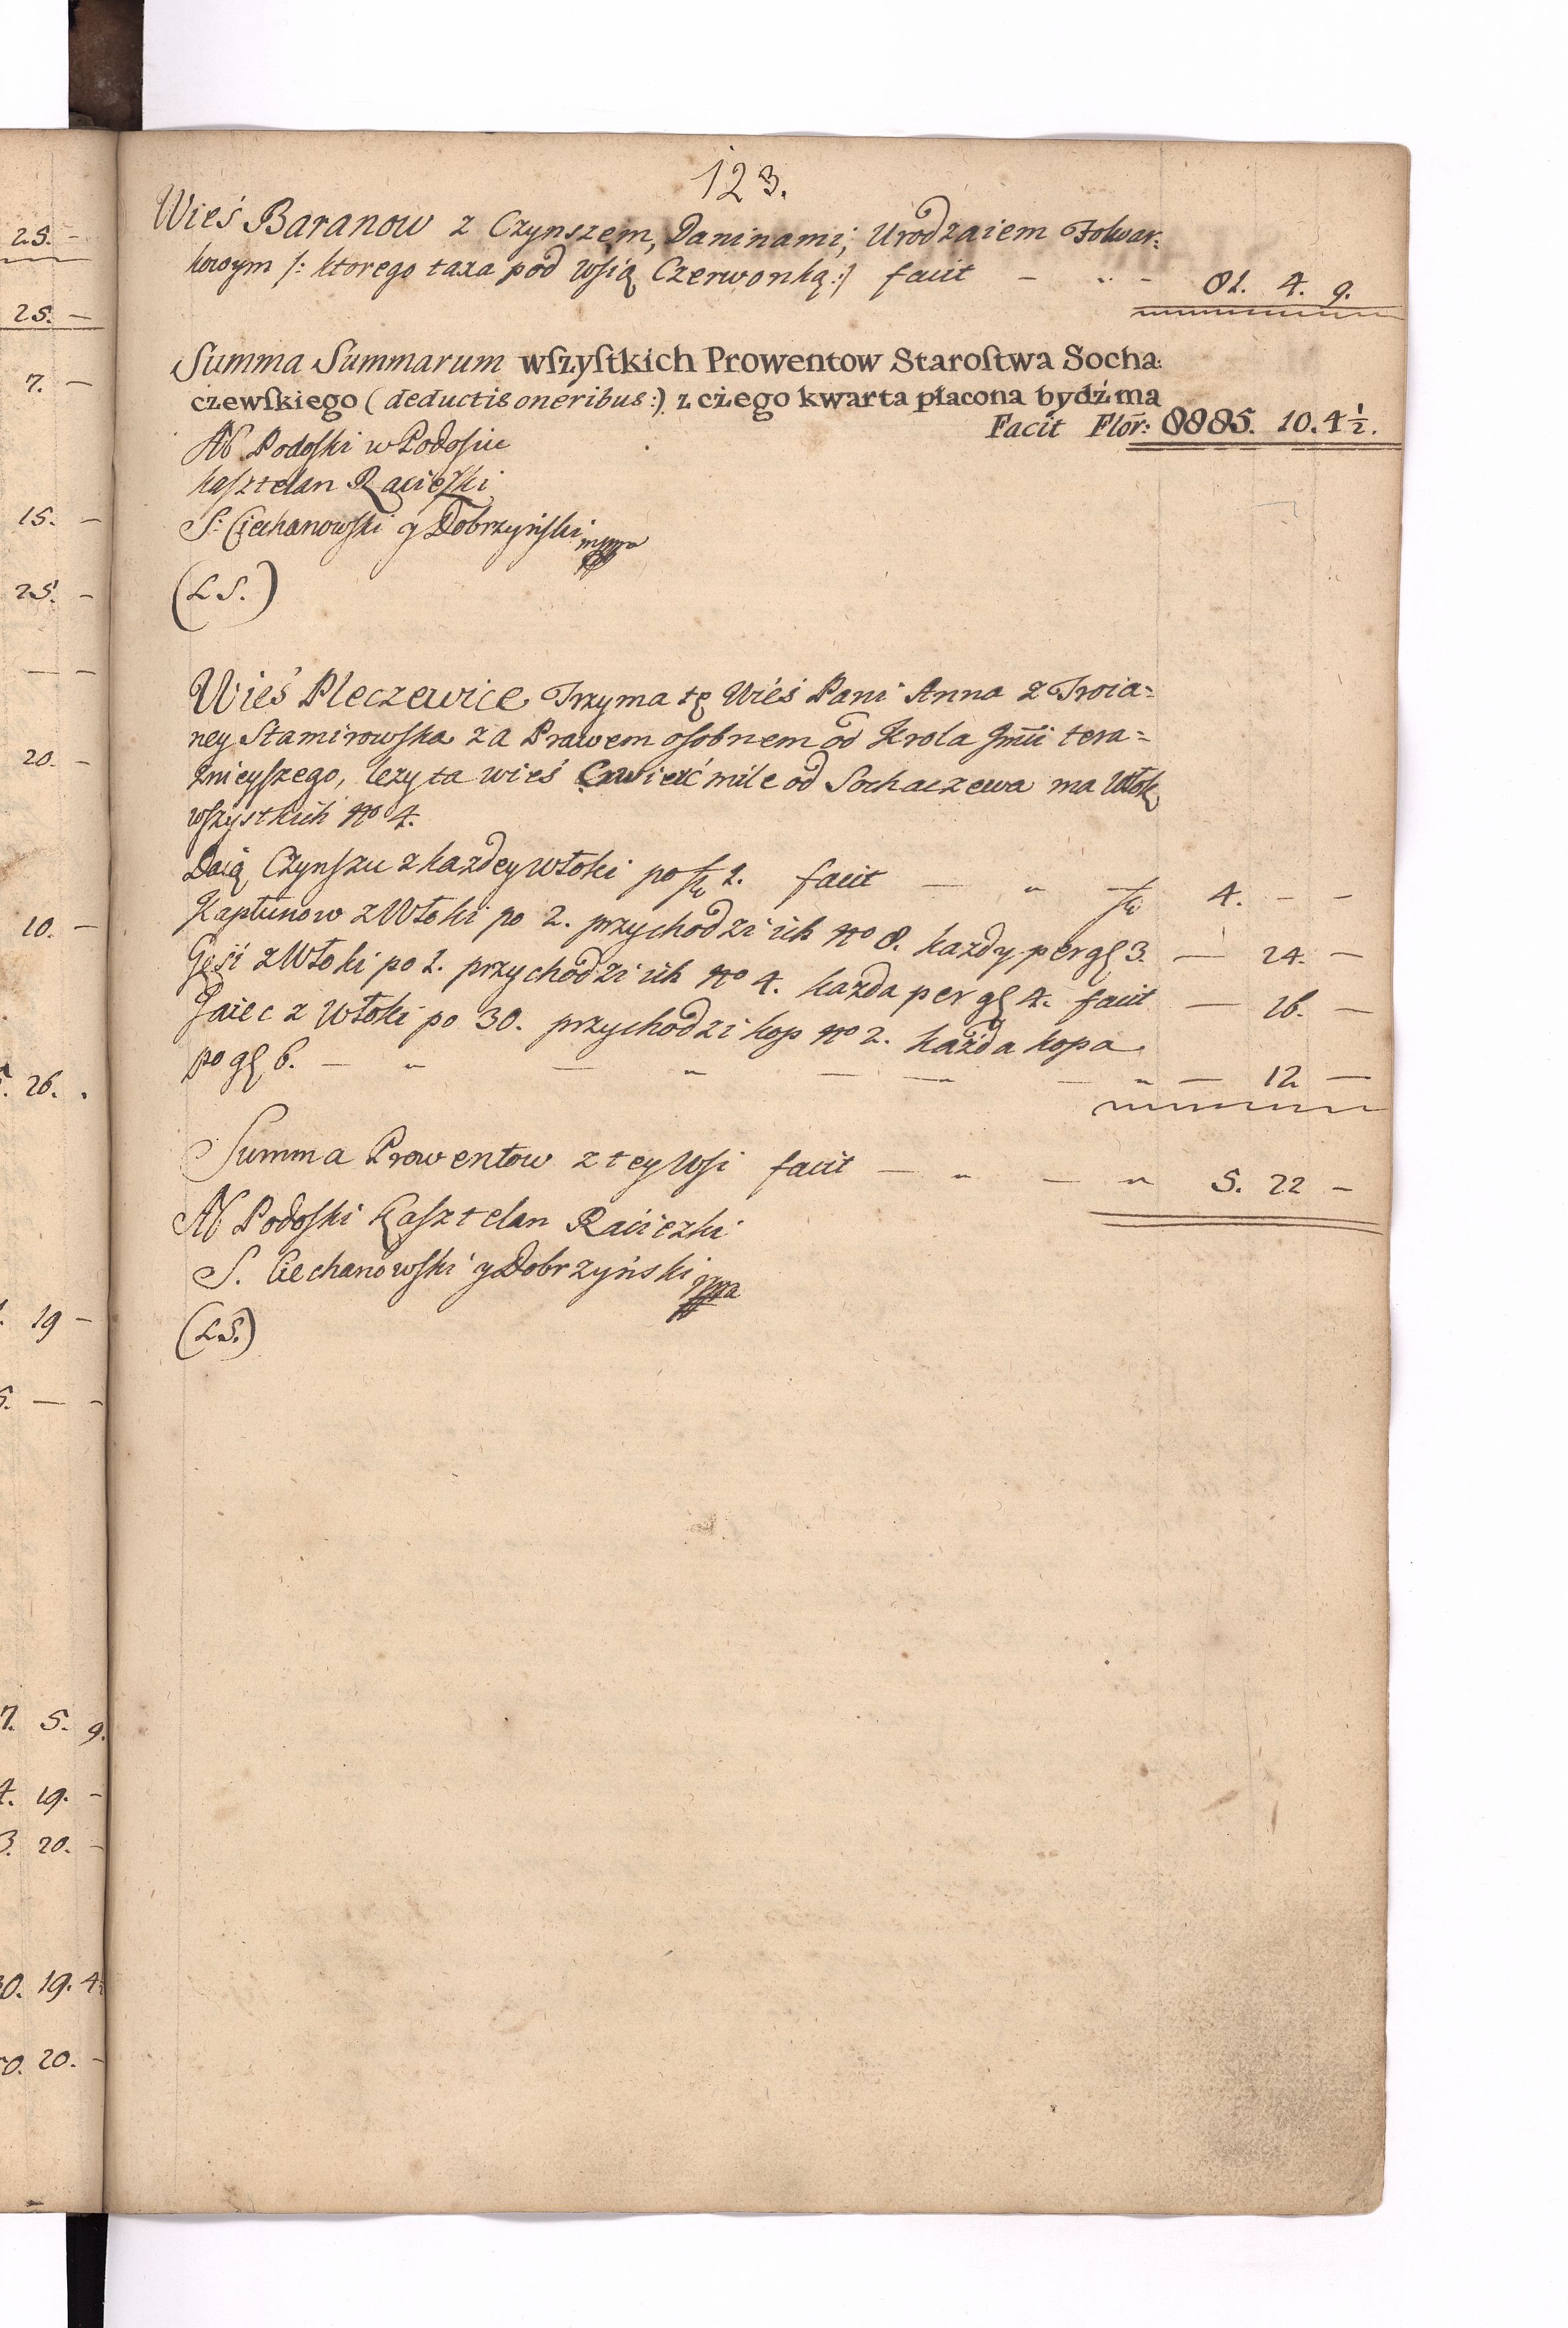 25. -
25. -
7. -
15. -
25. -
— -
20. -
10. -
26. .
19 -
— -
7. 5. 9.
4. 19. -
3. 20. -
0. 19. 4
0. 20. -
123.
Wieś Baranow z Czynszem, Daninami, Urodzaiem Folwar:
kowym /: ktorego taxa pod Wsią Czerwonką :/ facit — „ - 81. 4. 9.
Summa Summarum wſzyſtkich Prowentow Staroſtwa Socha:
czewſkiego (deductis oneribus:) z czego kwarta płacona bydź ma
Facit Flor: 8885. 10. 4 ½.
M Podoſki w Podoſiu
kaſztelan Racięſki
S: Ciechanowſki y Dobrzyńſki mppa
(L S.)
Wieś Pleczewice Trzyma tę Wieś Pani Anna z Troia=
ney Stamirowſka za Prawem oſobnem od Krola Jmći tera=
źnieyſzego, leży ta wieś Czwierć mile od Sochaczewa ma Włok
wſzystkich No 4.
Daią Czynſzu z każdey włoki po fl 1. facit — „ fl 4. - -
Kapłunow z Włoki po 2. przychodzi ich No 8. każdy per gſ 3. — 24. —
Gęſi z Włoki po 1. przychodzi ich No 4. każda per gſ 4. facit — 16. —
Jaiec z Włoki po 30. przychodzi kop No 2. każda kopa
po gſ 6. — „ — „ — — „ — „ — 12 —
Summa Prowentow z tey Wſi facit — „ — „ 5. 22 —
M Podoſki Kaſztelan Raciezki
S. Ciechanowſki y Dobrzyński mppa
(L S.)